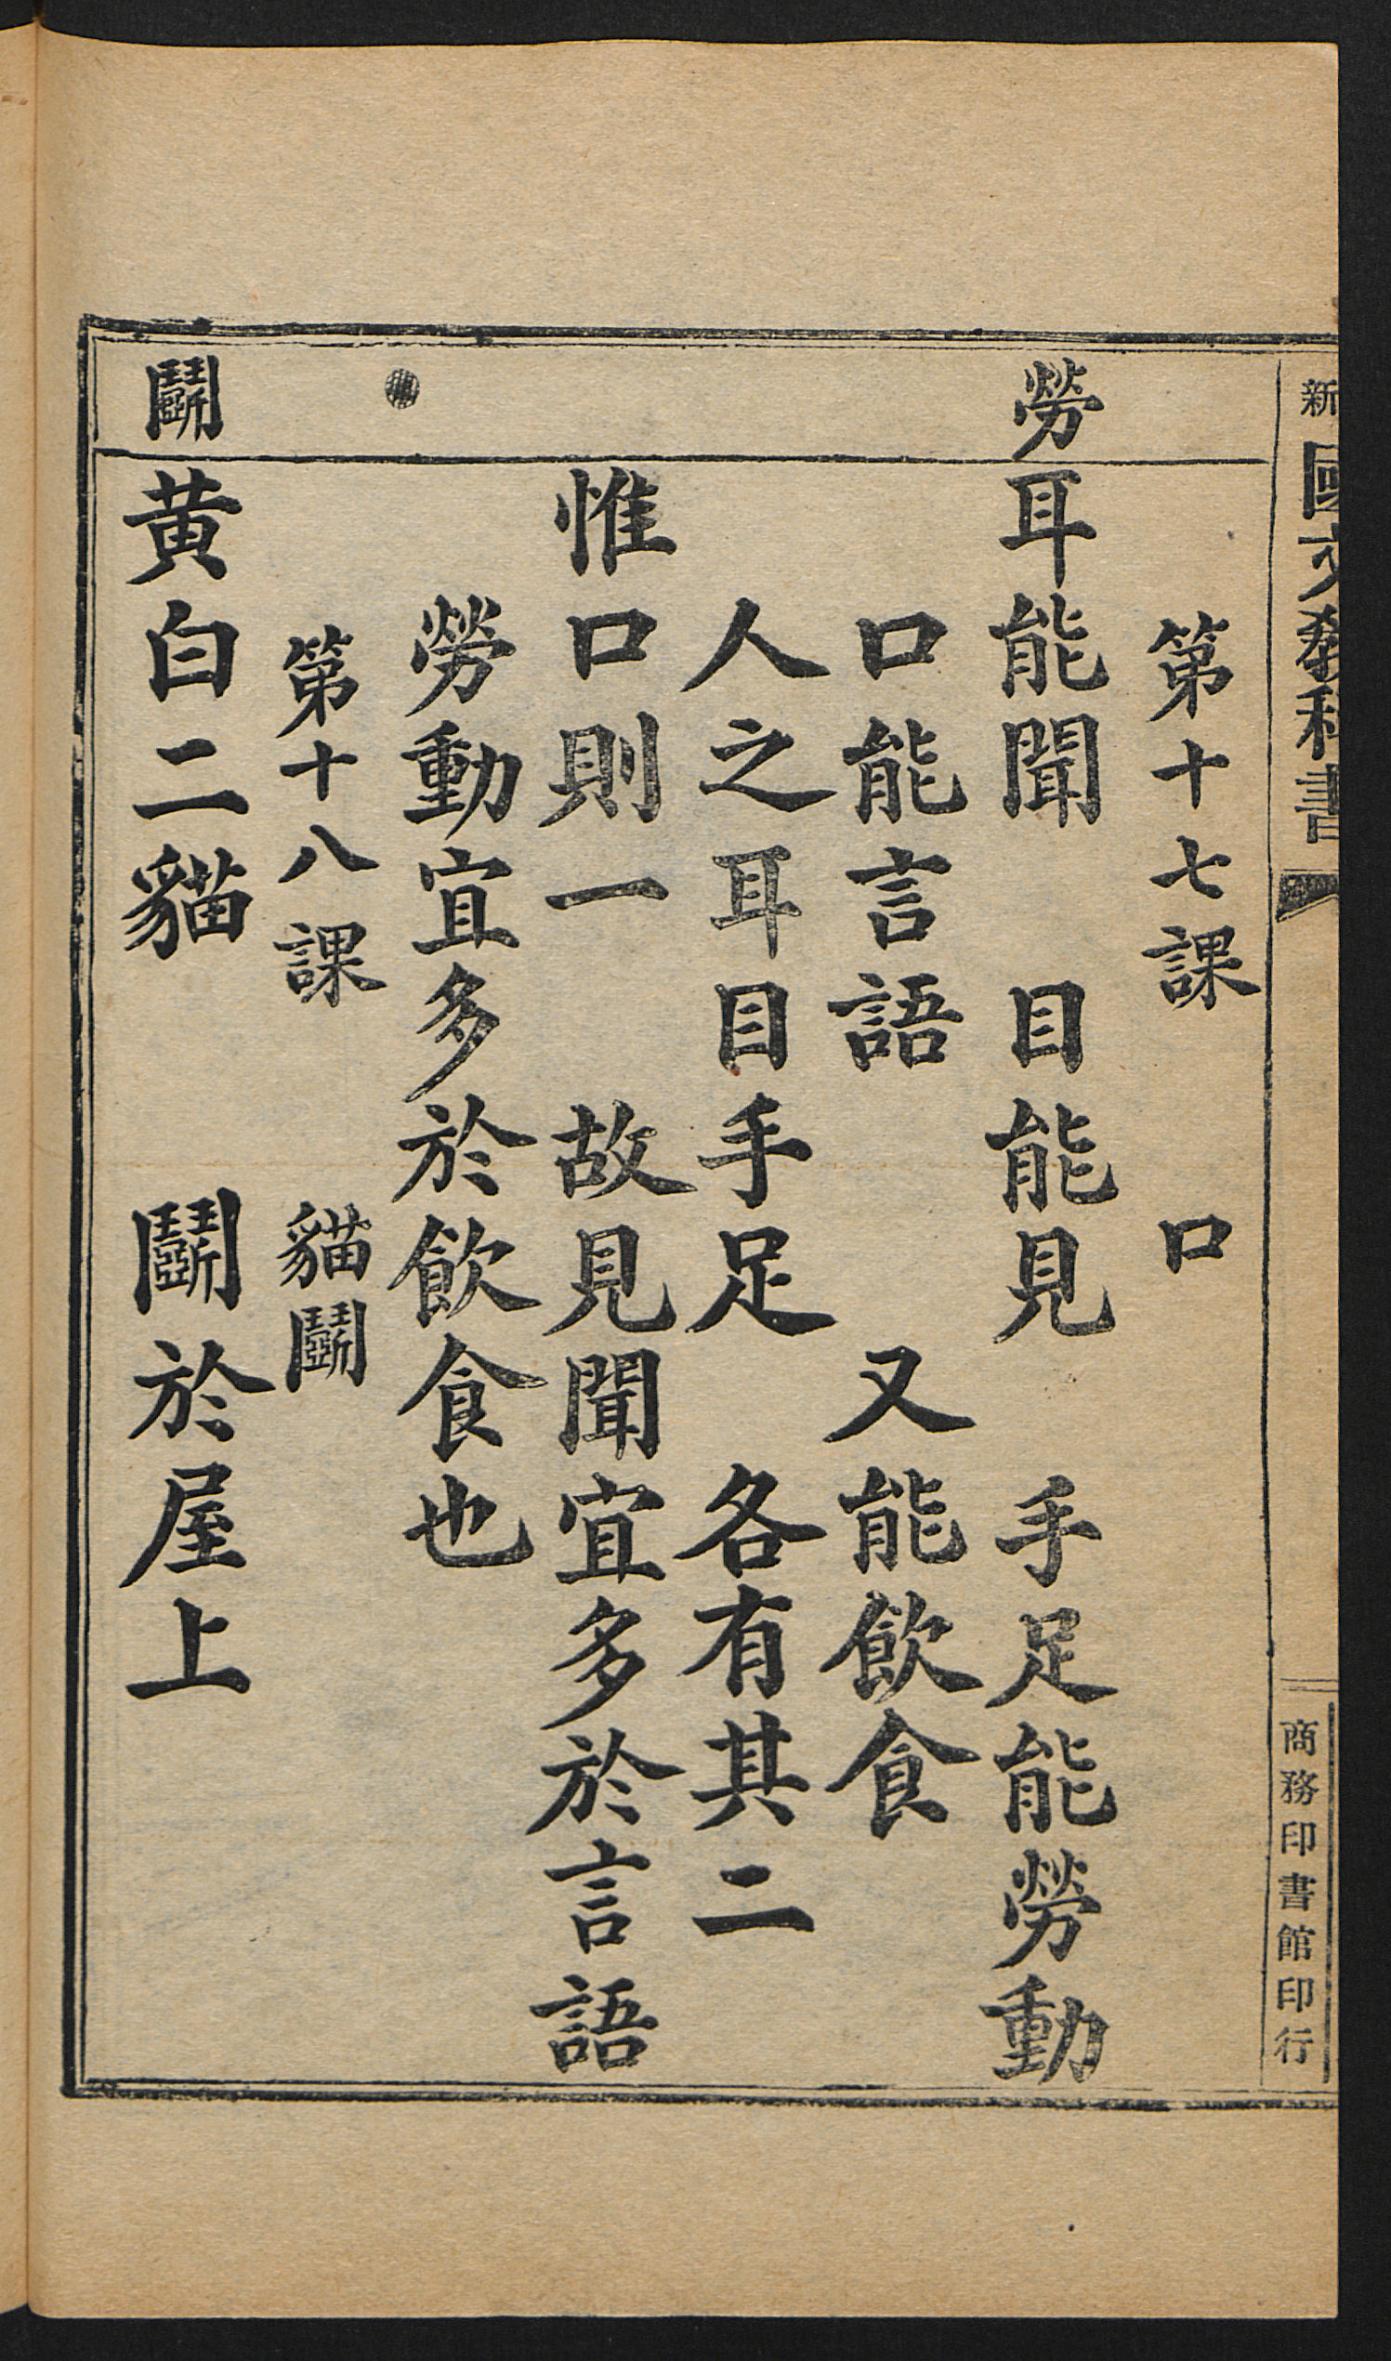 新國文教科書
商務印書館印行
第十七課 口
勞
耳能聞 目能見 手足能勞動
口能言語 又能飲食
人之耳目手足 各有其二
惟口則一 故見聞宜多於言語
勞動宜多於飲食也
第十八課 貓鬭
鬭
黃白二貓 鬭於屋上